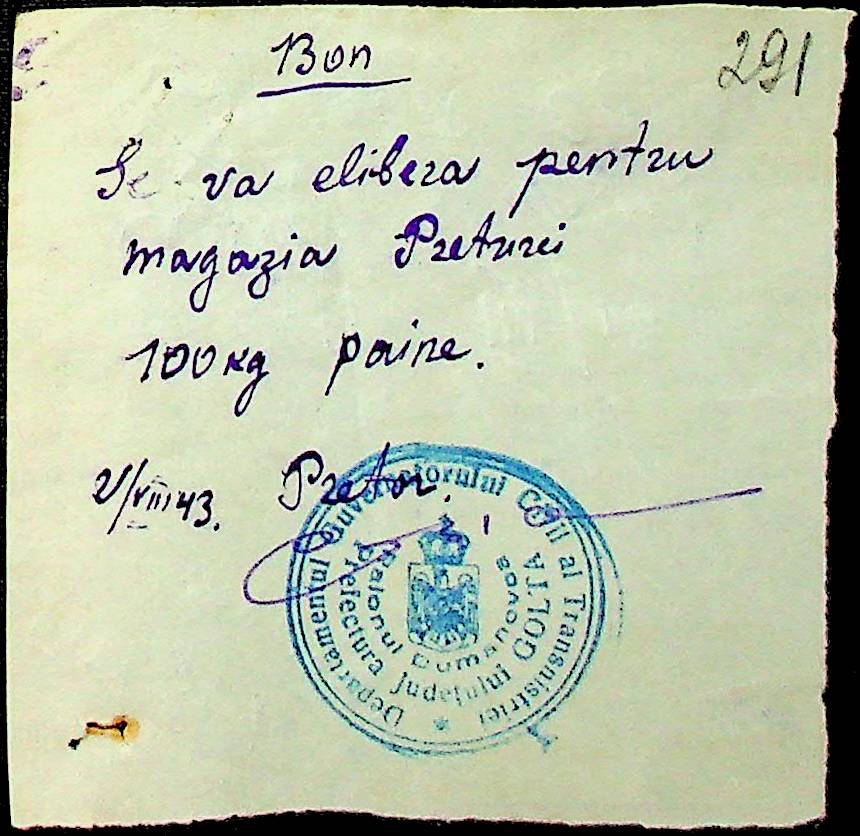 291
Bon
Se va elibera pentru
magazia Preturei
100 kg paine.
2/VIII 43. Pretor.
Departamentul Guvernatorului Civil al Transnistriei *
Prefectura Județului GOLTA
Raionul Dumanovos